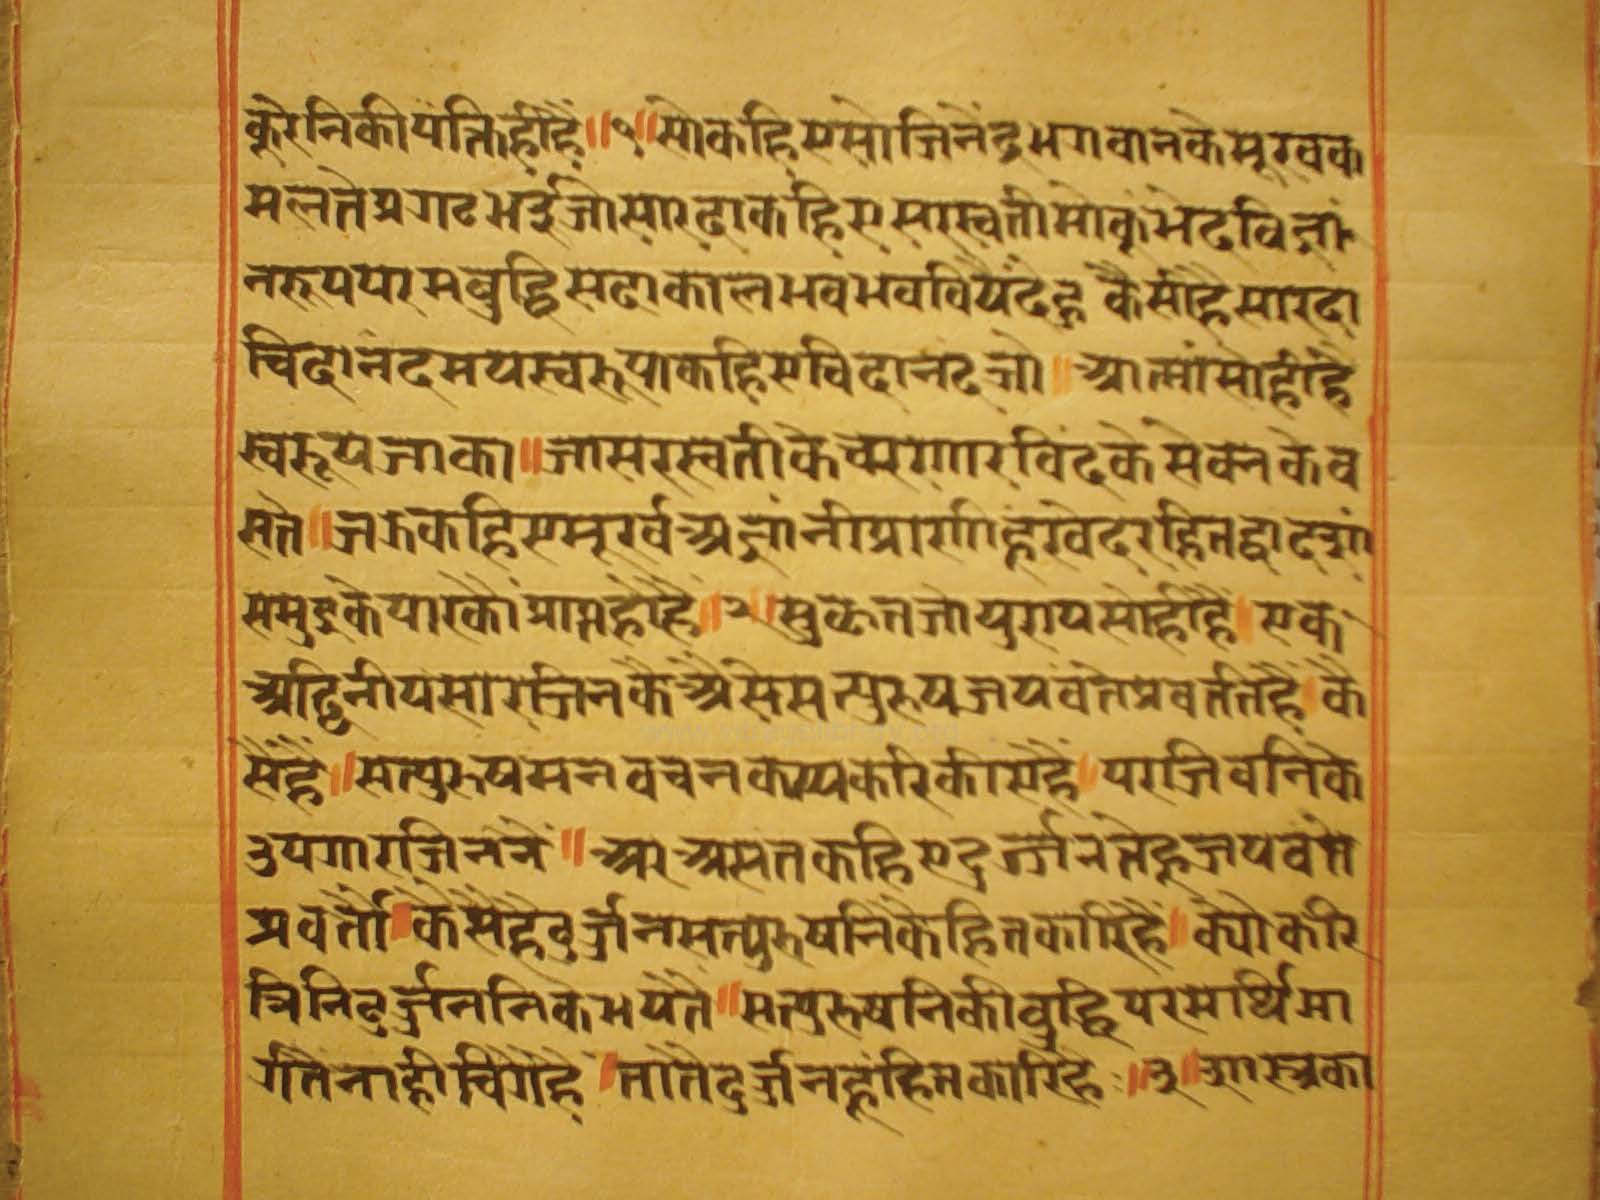 कूरेनिकीपंक्तिहीहैं॥१॥सोकहिएसोजिनेंद्रभगवानकेमूखक
मलतेप्रगटभईजोसारदाकहिएसारस्वतीमोकुंभेदविज्ञां
नरूपपरमबुद्धिसदाकालभवभवविषैंदेहु कैसीहैसारदा
चिदानंदमयस्वरूपाकहिएचिदानंदजो॥आत्मांसोहीहै
स्वरूपजाका॥जासरस्वतीकेचरणारविंदकेसेवनकेव
सते॥जडकहिएमूरर्वअज्ञांनीप्राणीहूंखेदरहितद्वादशां
समुद्रकेपारकौंप्राप्तहोहैं॥२॥सुकृतजोपुण्यसोहीहैं।एक
अद्वितीयसारजिनकैअैसेसत्पुरुषजयवंतेप्रवर्ततेहैं।कै
सेंहैं॥सत्पुरुषमनवचनकायकरिकीयेहैं।परजिवनिके
उपगारजिननें॥अरअसंतकहिएदुर्ज्जनतेहूजयवंते
प्रवर्तौ।कैसेहैदुर्ज्जनसत्पुरुषनिकैहितकारिहैं।क्योकरि
त्रिनिदुर्ज्जननिकेभयतै॥सत्पुरुषनिकीबुद्धिपरमार्थिमा
र्गतैनाहीचिगैहैं।तातैदुर्ज्जनहूंहितकारिहै॥३॥शास्त्रका